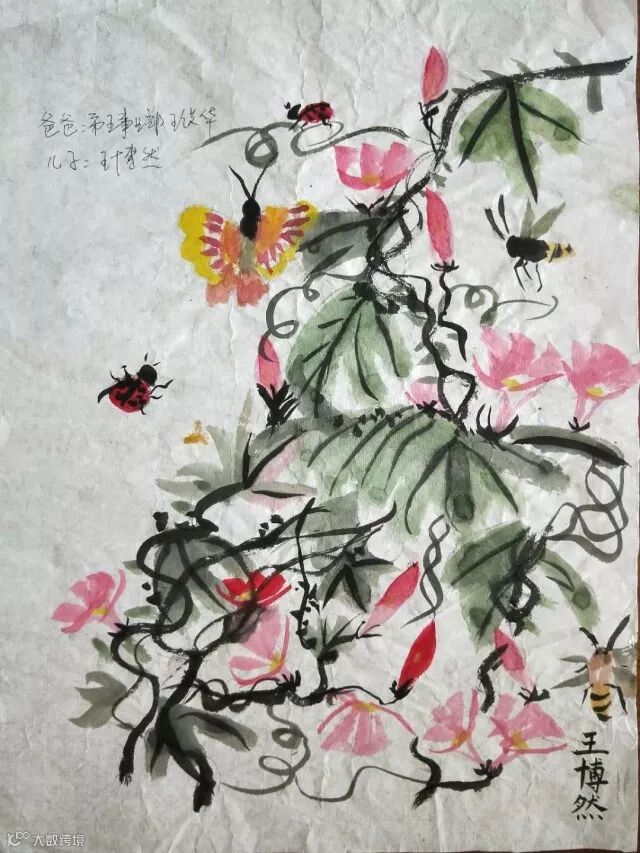 爸爸：第五事业部 王俊华
儿子：王博然
王
博
然
大数跨境